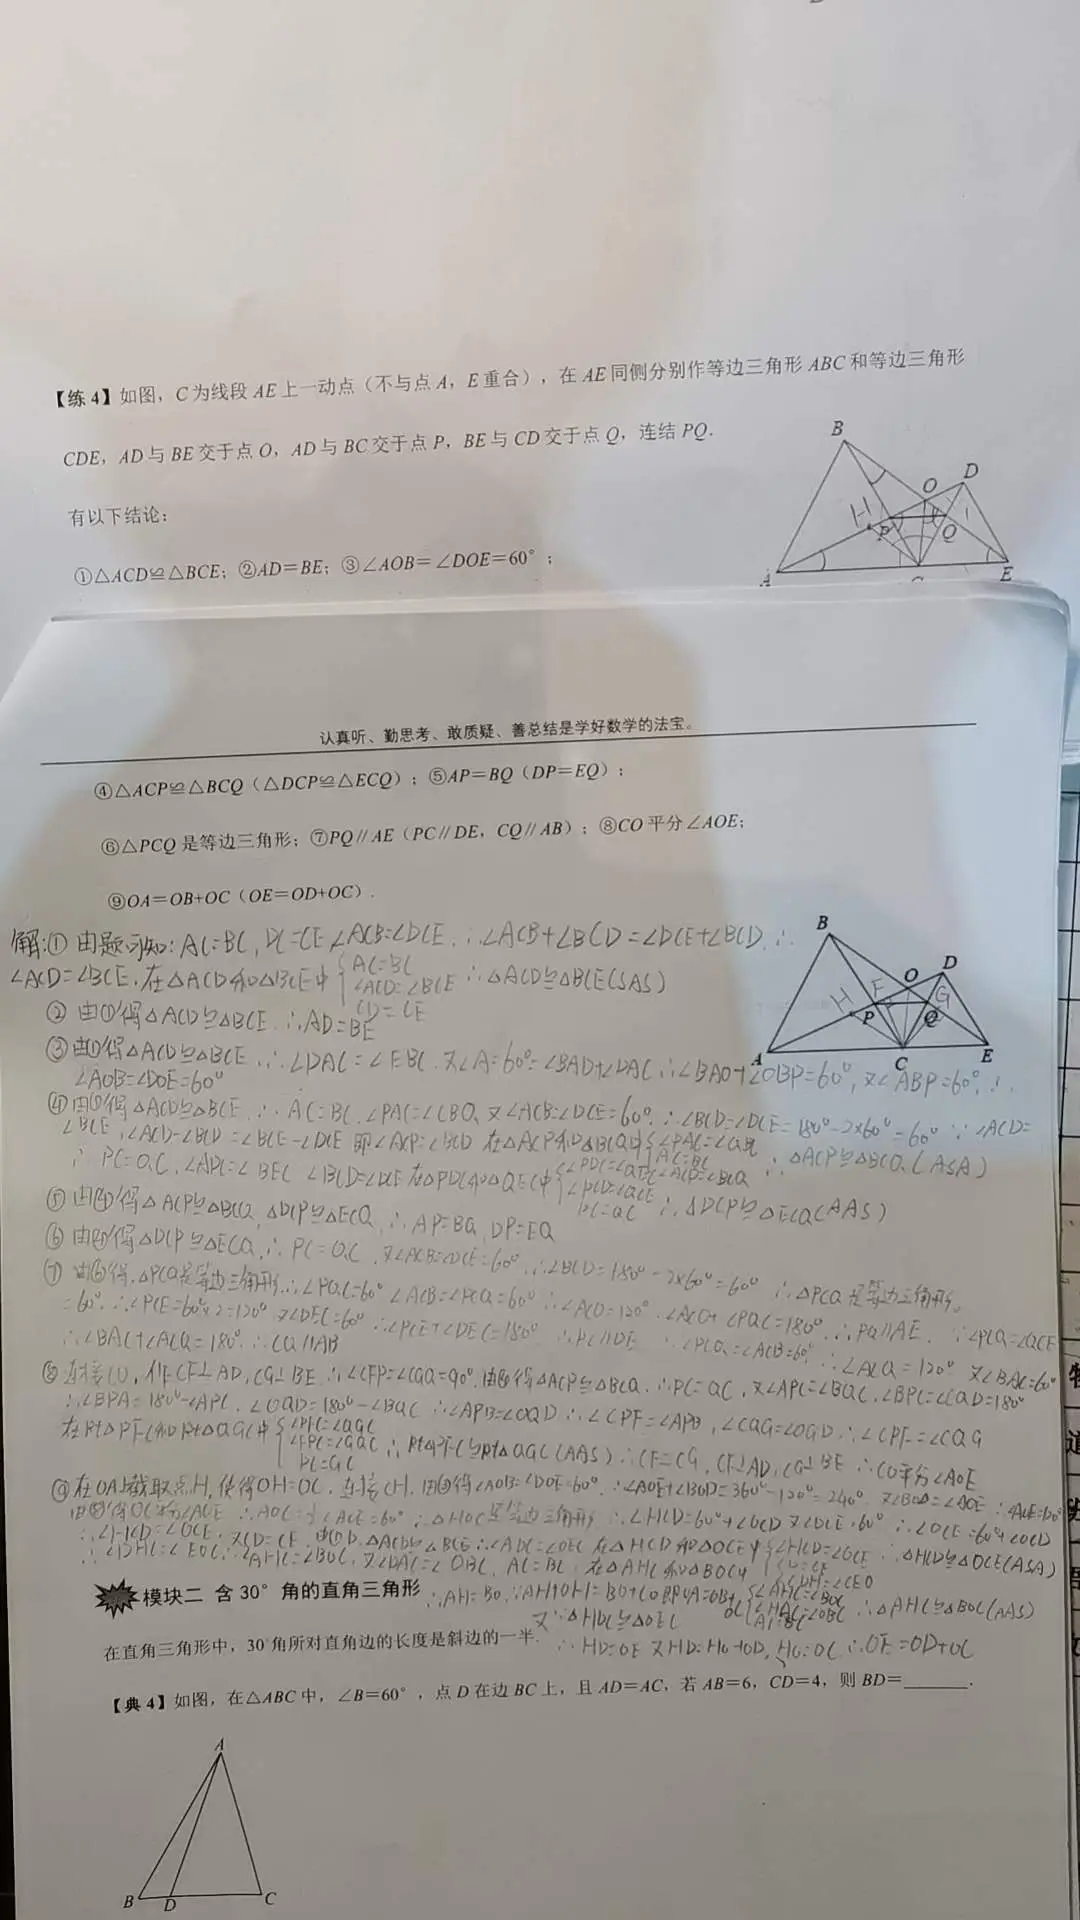 【练4】如图，C为线段AE上一动点（不与点A，E重合），在AE同侧分别作等边三角形ABC和等边三角形
CDE，AD与BE交于点O，AD与BC交于点P，BE与CD交于点Q，连结PQ．
有以下结论：
①△ACD≌△BCE；②AD＝BE；③∠AOB＝∠DOE＝60°；
B
O
D
H
P
Q
A
E
认真听、勤思考、敢质疑、善总结是学好数学的法宝。
④△ACP≌△BCQ（△DCP≌△ECQ）；⑤AP＝BQ（DP＝EQ）；
⑥△PCQ是等边三角形；⑦PQ∥AE（PC∥DE，CQ∥AB）；⑧CO平分∠AOE；
⑨OA＝OB+OC（OE＝OD+OC）．
B
O
D
H
F
G
P
Q
A
C
E
解:① 由题可知: AC=BC, DC=CE, ∠ACB=∠DCE ∴∠ACB+∠BCD=∠DCE+∠BCD ∴
∠ACD=∠BCE, 在△ACD和△BCE中 {AC=BC ∠ACD=∠BCE CD=CE ∴△ACD≌△BCE(SAS)
② 由①得△ACD≌△BCE ∴AD=BE
③ 由①得△ACD≌△BCE ∴∠DAC=∠EBC 又∠A=60°=∠BAD+∠DAC ∴∠BAO+∠OBP=60°, 又∠ABP=60°, ∴
∠AOB=∠DOE=60°
④ 由①得△ACD≌△BCE ∴AC=BC, ∠PAC=∠CBQ, 又∠ACB=∠DCE=60°, ∴∠BCD=∠DCE=180°-2×60°=60° ∵∠ACD=
∠BCE, ∠ACD-∠BCD=∠BCE-∠DCE 即∠ACP=∠BCD 在△ACP和△BCQ中 {∠PAC=∠QBC AC=BC ∠ACP=∠BCQ ∴△ACP≌△BCQ(ASA)
∴PC=QC, ∠ADC=∠BEC ∠BCD=∠DCE 在△PDC和△QEC中 {∠PDC=∠QEC ∠PCD=∠QCE PC=QC ∴△DCP≌△ECQ(AAS)
⑤ 由④得△ACP≌△BCQ, △DCP≌△ECQ, ∴AP=BQ, DP=EQ
⑥ 由④得△DCP≌△ECQ, ∴PC=QC, 又∠ACB=∠DCE=60°, ∴∠BCD=180°-2×60°=60° ∴△PCQ是等边三角形。
⑦ 由⑥得, △PCQ是等边三角形 ∴∠PQC=60° ∠ACB=∠PCQ=60° ∴∠ACD=120° ∠ACQ+∠PQC=180° ∴PQ∥AE. ∵∠PCQ=∠QCE
=60° ∴∠PCE=60°×2=120° 又∠DEC=60° ∴∠PCE+∠DEC=180° ∴PC∥DE ∵∠PCQ=∠ACB=60° ∴∠ACQ=120° 又∠BAC=60°
∴∠BAC+∠ACQ=180° ∴CQ∥AB
⑧ 连接CO, 作CF⊥AD, CG⊥BE ∴∠CFP=∠CGQ=90°, 由④得△ACP≌△BCQ ∴PC=QC, 又∠APC=∠BQC, ∠BPC=∠CQD=180°
∴∠BPA=180°-∠APC, ∠OQD=180°-∠BQC ∴∠APB=∠OQD ∴∠CPF=∠APB, ∠CQG=∠OQD ∴∠CPF=∠CQG
在Rt△PFC和Rt△QGC中 {∠PFC=∠QGC ∠FPC=∠GQC PC=QC ∴Rt△PFC≌Rt△QGC(AAS) ∴CF=CG, CF⊥AD, CG⊥BE ∴CO平分∠AOE
⑨ 在OA上截取点H, 使得OH=OC, 连接CH, 由③得∠AOB=∠DOE=60° ∴∠AOE+∠BOD=360°-120°=240° 又∠BOD=∠AOE ∴∠AOE=120°
由⑧得OC平分∠AOE ∴∠AOC=½∠AOE=60° ∴△HOC是等边三角形 ∴∠HCD=60°+∠OCD 又∠DCE=60° ∴∠OCE=60°+∠OCD
∴∠HCD=∠OCE, 又CD=CE 由①得△ACD≌△BCE ∴∠ADC=∠OEC 在△HCD和△OCE中 {∠HCD=∠OCE CD=CE ∠CDH=∠CEO ∴△HCD≌△OCE(ASA)
∴∠DHC=∠EOC ∴∠AHC=∠BOC, 又∠DAC=∠OBC, AC=BC, 在△AHC和△BOC中 {∠AHC=∠BOC ∠HAC=∠OBC AC=BC ∴△AHC≌△BOC(AAS)
模块二 含30°角的直角三角形 ∴AH=BO, ∵AH+OH=BO+CO即OA=OB+OC
又∵△HDC≌△OEC
在直角三角形中，30°角所对直角边的长度是斜边的一半． ∴HD=OE 又HD=HO+OD, HO=OC ∴OE=OD+OC
【典4】如图，在△ABC中，∠B＝60°，点D在边BC上，且AD＝AC，若AB＝6，CD＝4，则BD＝______．
A
B
D
C